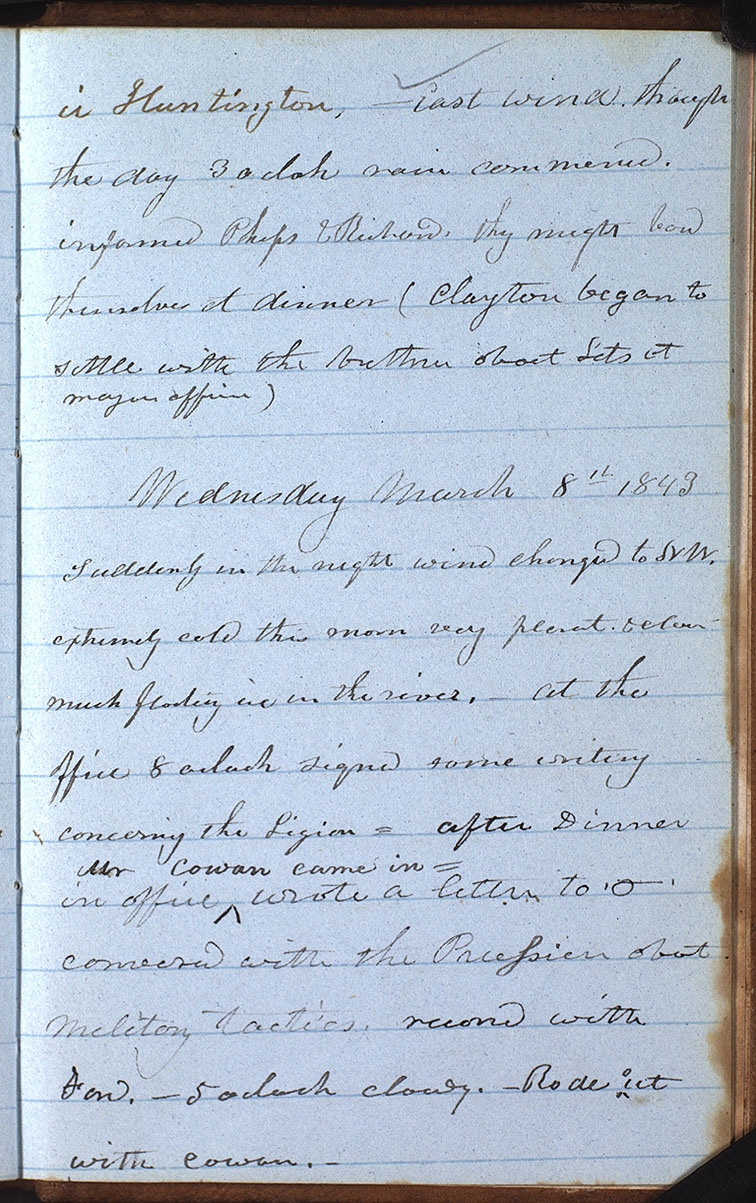 in Huntington, — East wind. through
the day 3 oclok rain commencd.
informed Phelps & Richard. thy might boad
themselves at dinner ( Clayton began to
settle with the bretheren about Lots at
mayors office )
Wednesday March 8th 1843
Suddenly in the night wind changed to N W.
extremely cold this morn very plesnt. & clear
much floating ice in the river. — at the
office 8 oclock signed some writing
concerning the Ligion = after Dinner
Mr Cowan came in =
in office ^ wrote a letter to
convesed with the Prussian about
Military tactics. recond with
Ford. — 5 oclock cloudy. — Rode out
with cowan. —